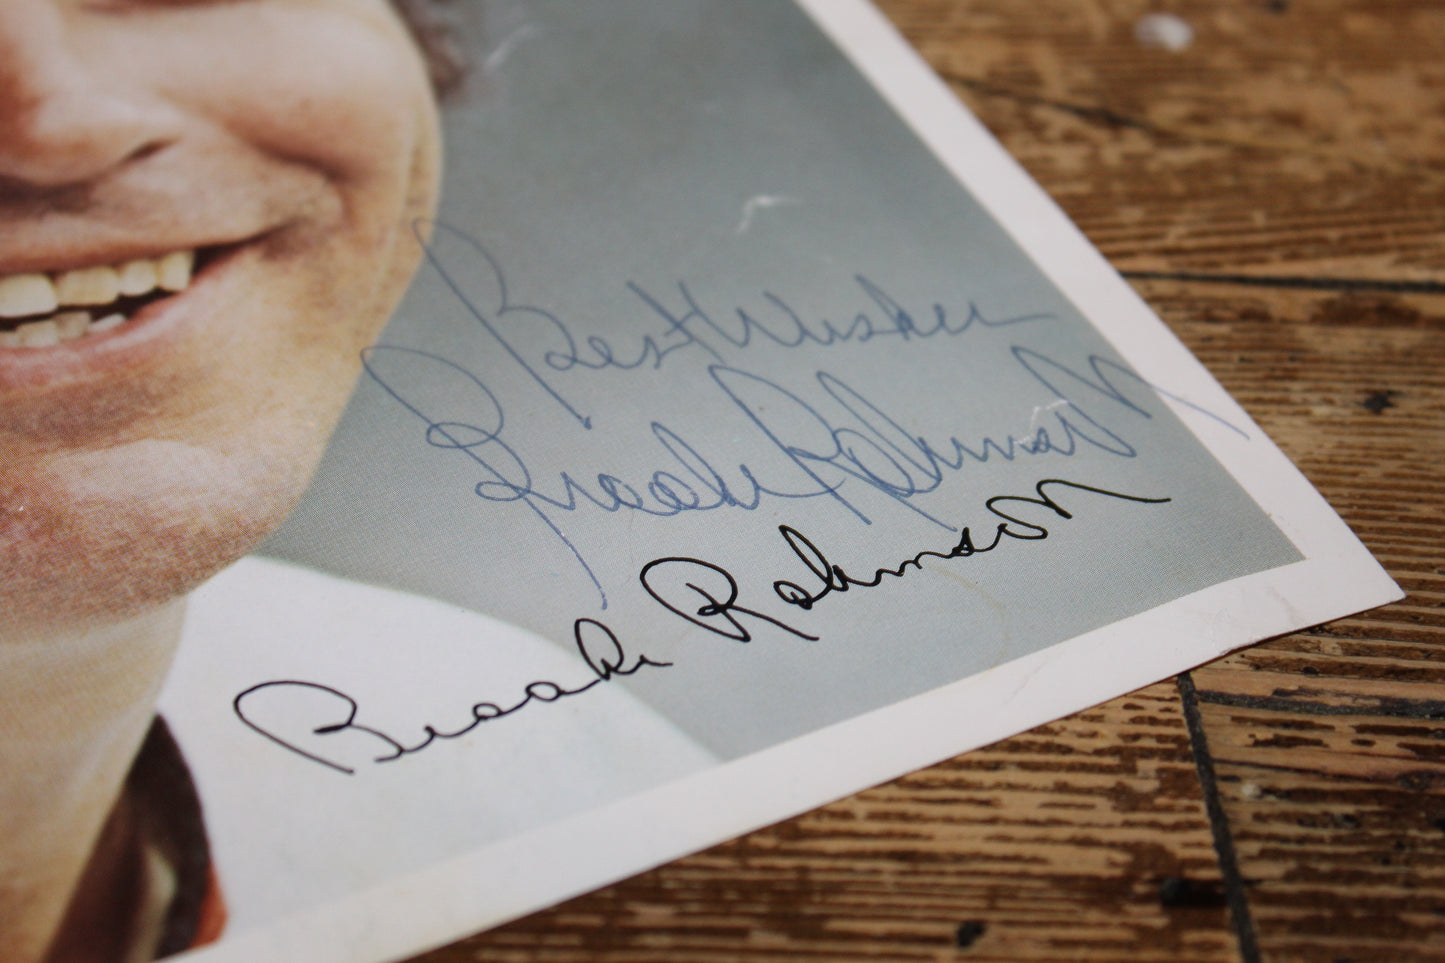 Best Wishes
Brooks Robinson
Brooks Robinson